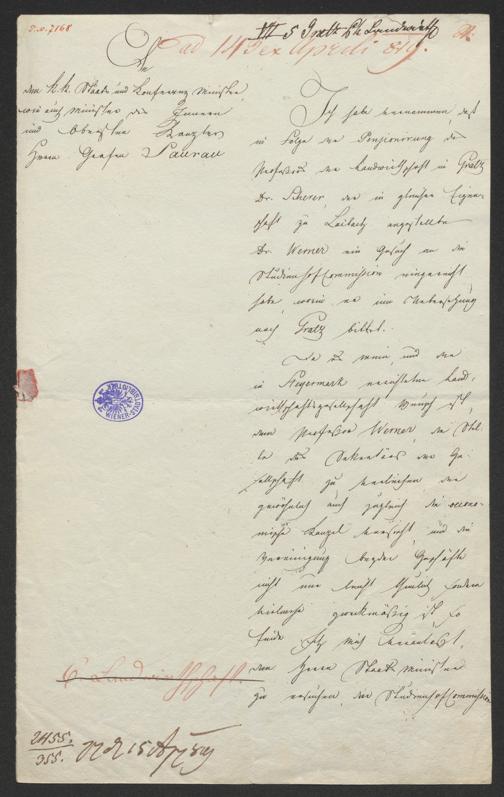 J.N. 7168
VII 5 Gratz
ad 143 ex Aprili 819.
An
den k.k. Staats und Konferenz Minister,
wie auch Minister des Innern
und Obersten Kanzler
Herrn Grafen Saurau
Ich habe vernommen, daß
in Folge der Pensionirung des
Professors der Landwirthschaft in Gratz
Dr. Scherer, der in gleicher Eigen-
schaft zu Laibach angestellte
Dr. Werner ein Gesuch an die
Studienhofcommission eingereicht
habe, worin er um Uebersetzung
nach Gratz bittet.
Da es mein, und der
in Steyermark errichteten Land-
wirthschaftsgesellschaft Wunsch ist,
dem Professor Werner, die Stel-
le des Sekretärs der Ge-
sellschaft zu verleihen der
gewöhnlich auch zugleich die oecono-
mische Kanzel versieht, und die
Vereinigung beyder Geschäfte
nicht nur leicht thunlich sondern
zweckmäßig ist, so
finde Ich mich veranlaßt,
den Herrn Staats Minister
zu ersuchen, die Studienhofcommission
WIENER STADTBIBLIOTHEK
6 Landwirthschaft
2455.
355.
15 819